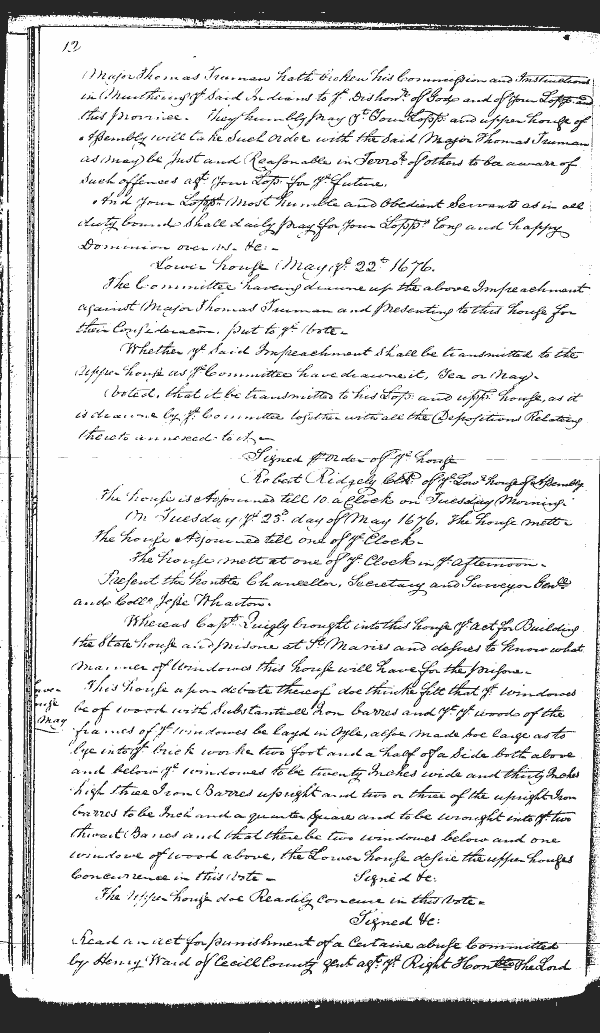 12
Major Thomas Truman hath broken his Commission and Instructions
in Murthering yͤ Said Indians to yͤ Dishonͬ of God and of Your Lopp and
this Province. They humbly Pray yͭ Your Lopp and upper house of
Assembly will take Such Order with the Said Major Thomas Truman
as may be Just and Reasonable in Terrͬ of others to be aware of
Such offences agͭ Your Lopp for yͤ future.
And Your Loppͭ Most humble and Obedient Servants as in all
duty bound Shall daily Pray for Your Loppͭ long and happy
Dominion over us &c:
Lower house May yͤ 22ͩ 1676.
The Committee having drawne up the above Impeachment
against Major Thomas Truman and Presenting to this house for
their Consideracon. put to yͤ Vote
Whether yͤ Said Impeachment Shall be transmitted to the
upper house as yͤ Committee have drawne it, Yea or Nay
Voted, that it be transmitted to his Lopp and uppͬ house, as it
is drawne by yͤ Committee together with all the Depositions Relating
thereto annexed to it
Signed ꝑ Order of yͤ house
Robert Ridgely Clk of yͤ Lowͬ house of Assembly
The house is Adjourned till 10 a Clock on Tuesday Morning
On Tuesday yͤ 23ͩ day of May 1676. The house mett
The house Adjourned till one of yͤ Clock
The house mett at one of yͤ Clock in yͤ afternoon
Present the honͦble Chancellor, Secretary and Surveyor Genͬll
and Collͦ Jesse Wharton.
Whereas Capͭ Quigly brought into this house yͤ act for Building
the State house and prisone at Sͭ Maries and desires to know what
manner of Windowes this house will have for the prisone
This house upon debate thereof doe thinke fitt that yͤ windowes
be of wood with Substantiall Iron barres and yͭ yͤ wood of the
frames of yͤ windowes be layd in Oyle, alsoe made soe large as to
lye into yͤ brick worke two foot and a half of a Side both above
and below yͤ windowes to be twenty Inches wide and thirty Inches
high three Iron Barres upright and two or three of the upright Iron
barres to be Inch and a quarter Square and to be wrought into yͤ two
thwart Barres and that there be two windowes below and one
windowe of wood above, the Lower house desire the upper houses
Concurrence in this Vote Signed &c:
The Upper house doe Readily concure in this Vote
Signed &c:
Read an act for punishment of a Certaine abuse Committed
by Henry Ward of Cecill County gent agͭ yͤ Right Honͦble The Lord
house
May